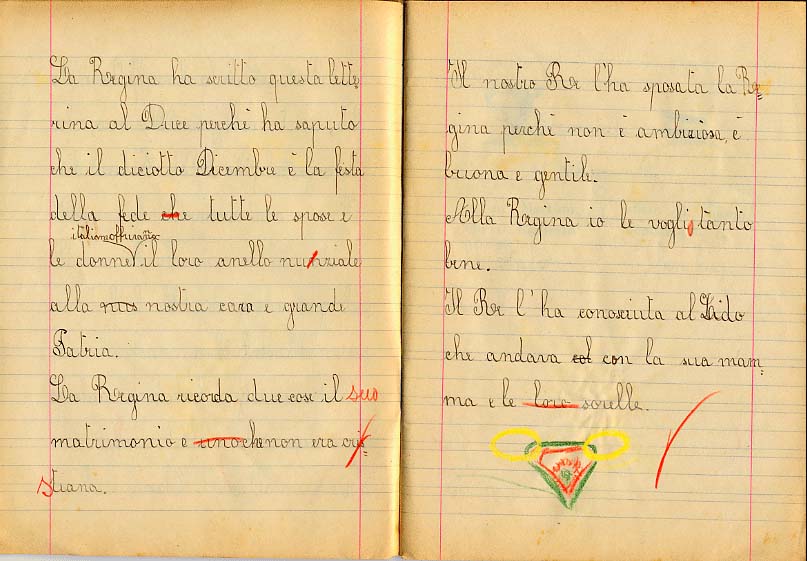 La Regina ha scritto questa lette
rina al Duce perchè ha saputo
che il diciotto Dicembre è la festa
della fede che tutte le spose e
italiane offriranno
le donne il loro anello nunziale
alla nus nostra cara e grande
Patria.
La Regina ricorda due cose il suo
matrimonio e uno che non era cris=
tiana.
Il nostro Re l'ha sposata la Re=
gina perchè non è ambiziosa, è
buona e gentile.
Alla Regina io le voglio tanto
bene.
Il Re l'ha conosciuta al Lido
che andava col con la sua mam=
ma e le loro sorelle.